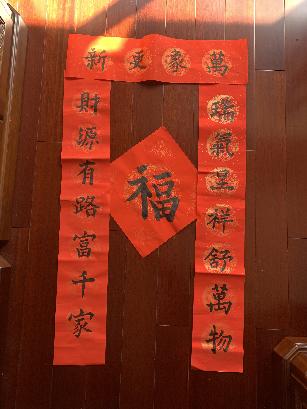 萬象更新
瑞氣呈祥舒萬物
財源有路富千家
福